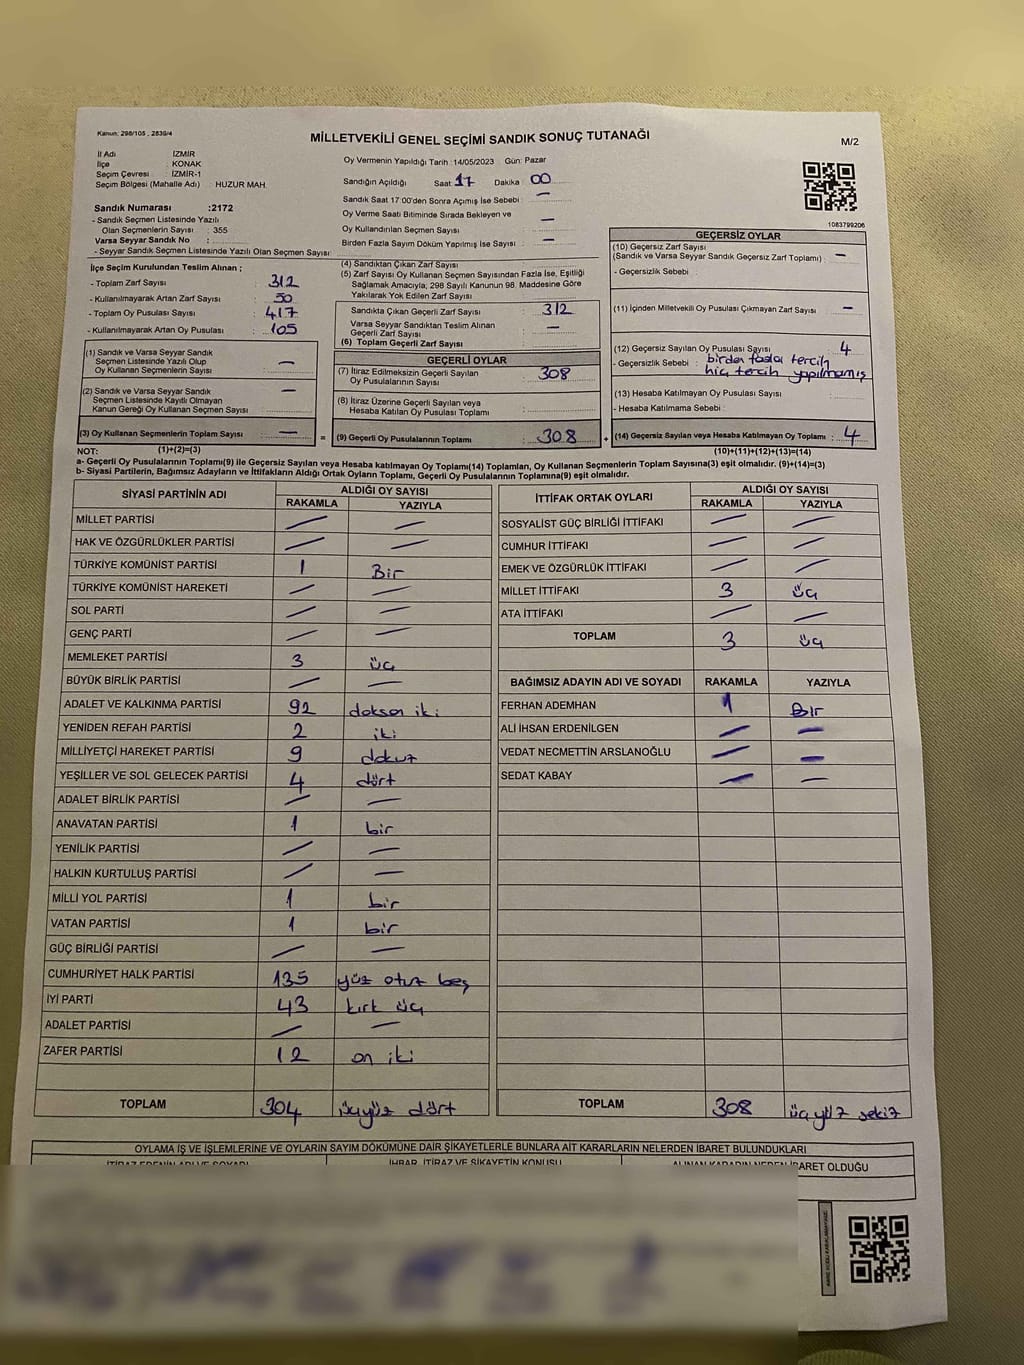 Kanun: 298/105 , 2839/4
MİLLETVEKİLİ GENEL SEÇİMİ SANDIK SONUÇ TUTANAĞI
M/2
İl Adı : İZMİR
İlçe : KONAK
Seçim Çevresi : İZMİR-1
Seçim Bölgesi (Mahalle Adı) : HUZUR MAH.
Sandık Numarası :2172
- Sandık Seçmen Listesinde Yazılı
Olan Seçmenlerin Sayısı : 355
Varsa Seyyar Sandık No :
- Seyyar Sandık Seçmen Listesinde Yazılı Olan Seçmen Sayısı:
Oy Vermenin Yapıldığı Tarih :14/05/2023 Gün: Pazar
Sandığın Açıldığı Saat 17 Dakika 00
Sandık Saat 17:00'den Sonra Açımış İse Sebebi : —
Oy Verme Saati Bitiminde Sırada Bekleyen ve
Oy Kullandırılan Seçmen Sayısı : —
Birden Fazla Sayım Döküm Yapılmış İse Sayısı : —
1083799206
İlçe Seçim Kurulundan Teslim Alınan ;
- Toplam Zarf Sayısı : 312
- Kullanılmayarak Artan Zarf Sayısı : 50
- Toplam Oy Pusulası Sayısı : 417
- Kullanılmayarak Artan Oy Pusulası : 105
(1) Sandık ve Varsa Seyyar Sandık
Seçmen Listesinde Yazılı Olup
Oy Kullanan Seçmenlerin Sayısı : —
(2) Sandık ve Varsa Seyyar Sandık
Seçmen Listesinde Kayıtlı Olmayan
Kanun Gereği Oy Kullanan Seçmen Sayısı : —
(3) Oy Kullanan Seçmenlerin Toplam Sayısı : —
(1)+(2)=(3)
(4) Sandıktan Çıkan Zarf Sayısı :
(5) Zarf Sayısı Oy Kullanan Seçmen Sayısından Fazla İse, Eşitliği
Sağlamak Amacıyla, 298 Sayılı Kanunun 98. Maddesine Göre
Yakılarak Yok Edilen Zarf Sayısı :
Sandıkta Çıkan Geçerli Zarf Sayısı : 312
Varsa Seyyar Sandıktan Teslim Alınan
Geçerli Zarf Sayısı : —
(6) Toplam Geçerli Zarf Sayısı :
GEÇERLİ OYLAR
(7) İtiraz Edilmeksizin Geçerli Sayılan
Oy Pusulalarının Sayısı : 308
(8) İtiraz Üzerine Geçerli Sayılan veya
Hesaba Katılan Oy Pusulası Toplamı :
= (9) Geçerli Oy Pusulalarının Toplamı : 308 +
GEÇERSİZ OYLAR
(10) Geçersiz Zarf Sayısı
(Sandık ve Varsa Seyyar Sandık Geçersiz Zarf Toplamı) : —
- Geçersizlik Sebebi :
(11) İçinden Milletvekili Oy Pusulası Çıkmayan Zarf Sayısı : —
(12) Geçersiz Sayılan Oy Pusulası Sayısı : 4
- Geçersizlik Sebebi : birden fazla tercih
hiç tercih yapılmamış
(13) Hesaba Katılmayan Oy Pusulası Sayısı :
- Hesaba Katılmama Sebebi :
(14) Geçersiz Sayılan veya Hesaba Katılmayan Oy Toplamı : 4
(10)+(11)+(12)+(13)=(14)
NOT:
a- Geçerli Oy Pusulalarının Toplamı(9) ile Geçersiz Sayılan veya Hesaba katılmayan Oy Toplamı(14) Toplamları, Oy Kullanan Seçmenlerin Toplam Sayısına(3) eşit olmalıdır. (9)+(14)=(3)
b- Siyasi Partilerin, Bağımsız Adayların ve İttifakların Aldığı Oy Toplamı, Geçerli Oy Pusulalarının Toplamına(9) eşit olmalıdır.
SİYASİ PARTİNİN ADI ALDIĞI OY SAYISI
RAKAMLA YAZIYLA
MİLLET PARTİSİ — —
HAK VE ÖZGÜRLÜKLER PARTİSİ — —
TÜRKİYE KOMÜNİST PARTİSİ 1 Bir
TÜRKİYE KOMÜNİST HAREKETİ — —
SOL PARTİ — —
GENÇ PARTİ — —
MEMLEKET PARTİSİ 3 üç
BÜYÜK BİRLİK PARTİSİ — —
ADALET VE KALKINMA PARTİSİ 92 doksan iki
YENİDEN REFAH PARTİSİ 2 iki
MİLLİYETÇİ HAREKET PARTİSİ 9 dokuz
YEŞİLLER VE SOL GELECEK PARTİSİ 4 dört
ADALET BİRLİK PARTİSİ — —
ANAVATAN PARTİSİ 1 bir
YENİLİK PARTİSİ — —
HALKIN KURTULUŞ PARTİSİ — —
MİLLİ YOL PARTİSİ 1 bir
VATAN PARTİSİ 1 bir
GÜÇ BİRLİĞİ PARTİSİ — —
CUMHURİYET HALK PARTİSİ 135 yüz otuz beş
İYİ PARTİ 43 kırk üç
ADALET PARTİSİ — —
ZAFER PARTİSİ 12 on iki
TOPLAM 304 üçyüz dört
İTTİFAK ORTAK OYLARI ALDIĞI OY SAYISI
RAKAMLA YAZIYLA
SOSYALİST GÜÇ BİRLİĞİ İTTİFAKI — —
CUMHUR İTTİFAKI — —
EMEK VE ÖZGÜRLÜK İTTİFAKI — —
MİLLET İTTİFAKI 3 üç
ATA İTTİFAKI — —
TOPLAM 3 üç
BAĞIMSIZ ADAYIN ADI VE SOYADI RAKAMLA YAZIYLA
FERHAN ADEMHAN 1 Bir
ALİ İHSAN ERDENİLGEN — —
VEDAT NECMETTİN ARSLANOĞLU — —
SEDAT KABAY — —
TOPLAM 308 üçyüz sekiz
OYLAMA İŞ VE İŞLEMLERİNE VE OYLARIN SAYIM DÖKÜMÜNE DAİR ŞİKAYETLERLE BUNLARA AİT KARARLARIN NELERDEN İBARET BULUNDUKLARI
İTİRAZ EDENİN ADI VE SOYADI İHBAR, İTİRAZ VE ŞİKAYETİN KONUSU ALINAN KARARIN NEDEN İBARET OLDUĞU